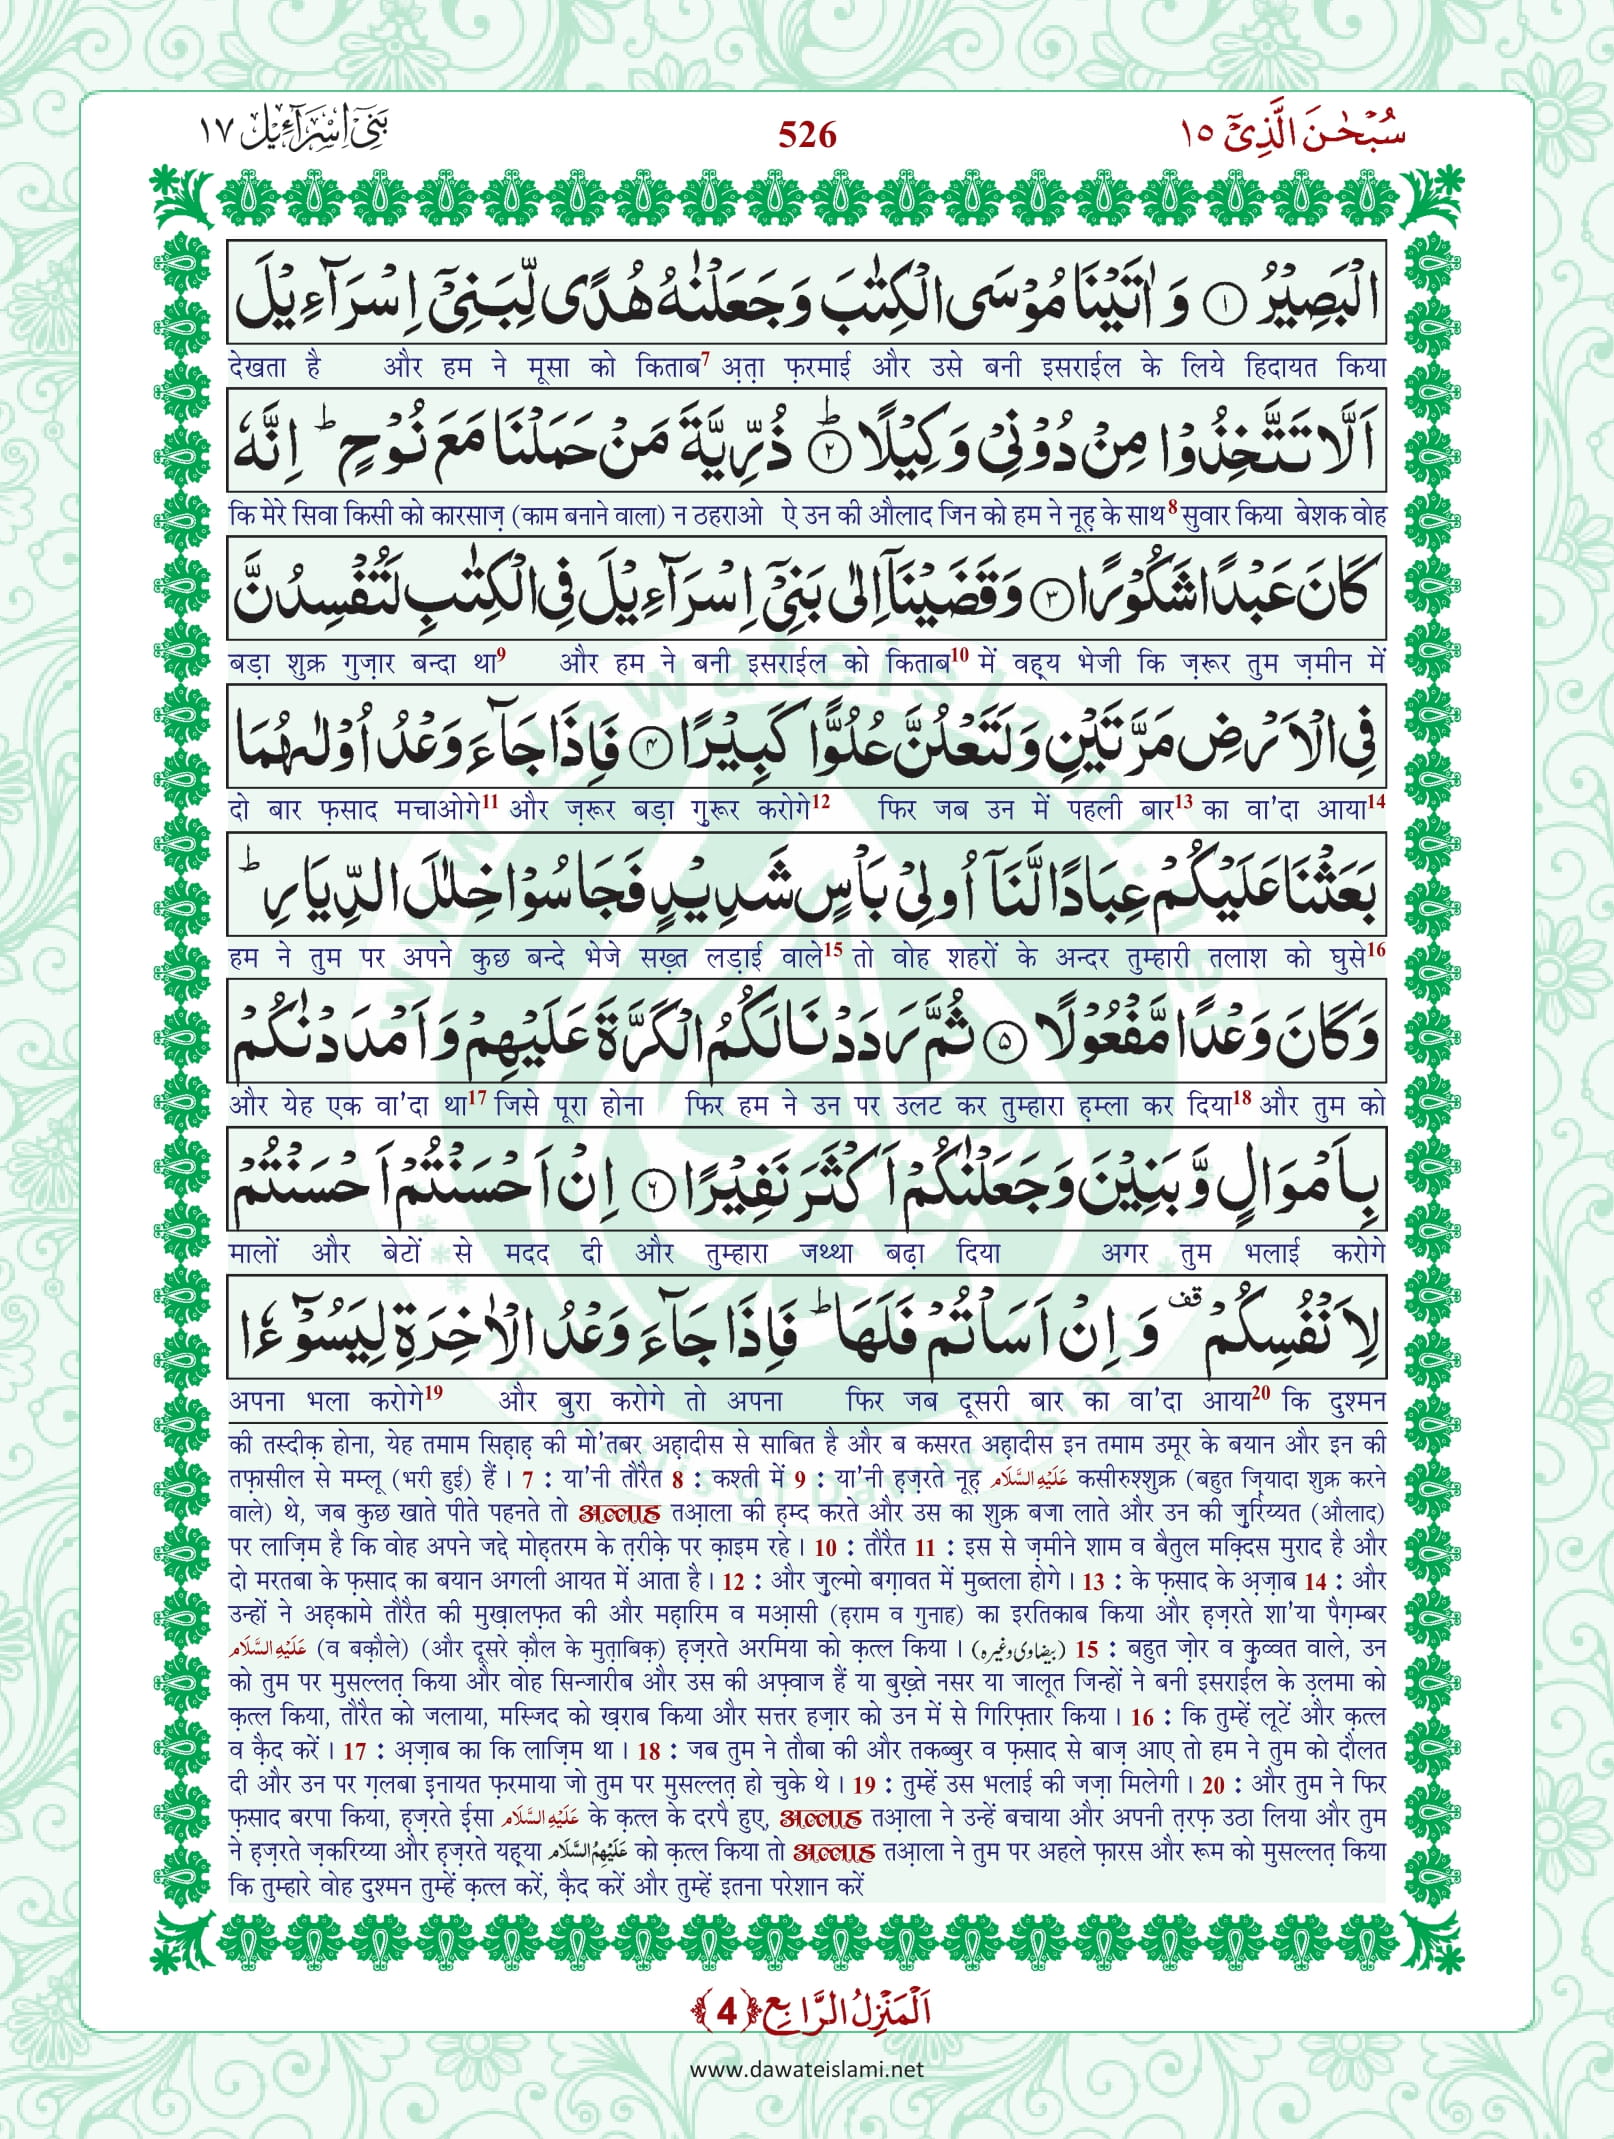 سُبْحٰنَ الَّذِیْۤ ١٥ 526 بَنِیْۤ اِسْرَآءِیْل ١٧
الْبَصِیْرُ ﴿١﴾ وَ اٰتَیْنَا مُوْسَی الْكِتٰبَ وَ جَعَلْنٰهُ هُدًی لِّبَنِیْۤ اِسْرَآءِیْلَ
देखता है और हम ने मूसा को किताब7 अ़त़ा फ़रमाई और उसे बनी इसराईल के लिये हिदायत किया
اَلَّا تَتَّخِذُوْا مِنْ دُوْنِیْ وَكِیْلًا ؕ﴿٢﴾ ذُرِّیَّةَ مَنْ حَمَلْنَا مَعَ نُوْحٍ ؕ اِنَّهٗ
कि मेरे सिवा किसी को कारसाज़ (काम बनाने वाला) न ठहराओ ऐ उन की औलाद जिन को हम ने नूह़ के साथ8 सुवार किया बेशक वोह
كَانَ عَبْدًا شَكُوْرًا ﴿٣﴾ وَ قَضَیْنَاۤ اِلٰی بَنِیْۤ اِسْرَآءِیْلَ فِی الْكِتٰبِ لَتُفْسِدُنَّ
बड़ा शुक्र गुज़ार बन्दा था9 और हम ने बनी इसराईल को किताब10 में वह़्य भेजी कि ज़रूर तुम ज़मीन में
فِی الْاَرْضِ مَرَّتَیْنِ وَ لَتَعْلُنَّ عُلُوًّا كَبِیْرًا ﴿٤﴾ فَاِذَا جَآءَ وَعْدُ اُوْلٰىهُمَا
दो बार फ़साद मचाओगे11 और ज़रूर बड़ा गुरूर करोगे12 फिर जब उन में पहली बार13 का वा'दा आया14
بَعَثْنَا عَلَیْكُمْ عِبَادًا لَّنَاۤ اُولِیْ بَاْسٍ شَدِیْدٍ فَجَاسُوْا خِلٰلَ الدِّیَارِ ؕ
हम ने तुम पर अपने कुछ बन्दे भेजे सख़्त लड़ाई वाले15 तो वोह शहरों के अन्दर तुम्हारी तलाश को घुसे16
وَ كَانَ وَعْدًا مَّفْعُوْلًا ﴿٥﴾ ثُمَّ رَدَدْنَا لَكُمُ الْكَرَّةَ عَلَیْهِمْ وَ اَمْدَدْنٰكُمْ
और येह एक वा'दा था17 जिसे पूरा होना फिर हम ने उन पर उलट कर तुम्हारा ह़म्ला कर दिया18 और तुम को
بِاَمْوَالٍ وَّ بَنِیْنَ وَ جَعَلْنٰكُمْ اَكْثَرَ نَفِیْرًا ﴿٦﴾ اِنْ اَحْسَنْتُمْ اَحْسَنْتُمْ
मालों और बेटों से मदद दी और तुम्हारा जथ्था बढ़ा दिया अगर तुम भलाई करोगे
لِاَنْفُسِكُمْ ۫ قف وَ اِنْ اَسَاْتُمْ فَلَهَا ؕ فَاِذَا جَآءَ وَعْدُ الْاٰخِرَةِ لِیَسُوْٓءٗا
अपना भला करोगे19 और बुरा करोगे तो अपना फिर जब दूसरी बार का वा'दा आया20 कि दुश्मन
की तस्दीक़ होना, येह तमाम सिह़ाह़ की मो'तबर अह़ादीस से साबित है और ब कसरत अह़ादीस इन तमाम उमूर के बयान और इन की
तफ़ासील से मम्लू (भरी हुई) हैं। 7 : या'नी तौरैत 8 : कश्ती में 9 : या'नी ह़ज़रते नूह़ عَلَيْهِ السَّلَام कसीरुश्शुक्र (बहुत ज़ियादा शुक्र करने
वाले) थे, जब कुछ खाते पीते पहनते तो अल्लाह तआ़ला की ह़म्द करते और उस का शुक्र बजा लाते और उन की जुर्रिय्यत (औलाद)
पर लाज़िम है कि वोह अपने जद्दे मोह़तरम के त़रीक़े पर क़ाइम रहे। 10 : तौरैत 11 : इस से ज़मीने शाम व बैतुल मक़्दिस मुराद है और
दो मरतबा के फ़साद का बयान अगली आयत में आता है। 12 : और ज़ुल्मो बग़ावत में मुब्तला होगे। 13 : के फ़साद के अ़ज़ाब 14 : और
उन्हों ने अह़कामे तौरैत की मुख़ालफ़त की और मह़ारिम व मआ़सी (ह़राम व गुनाह) का इरतिकाब किया और ह़ज़रते शा'या पैग़म्बर
عَلَيْهِ السَّلَام (व बक़ौले) (और दूसरे क़ौल के मुत़ाबिक़) ह़ज़रते अरमिया को क़त्ल किया। (بیضاوی وغیرہ) 15 : बहुत ज़ोर व क़ुव्वत वाले, उन
को तुम पर मुसल्लत़ किया और वोह सिन्जारीब और उस की अफ़्वाज हैं या बुख़्ते नसर या जालूत जिन्हों ने बनी इसराईल के उ़लमा को
क़त्ल किया, तौरैत को जलाया, मस्जिद को ख़राब किया और सत्तर हज़ार को उन में से गिरिफ़्तार किया। 16 : कि तुम्हें लूटें और क़त्ल
व क़ैद करें। 17 : अ़ज़ाब का कि लाज़िम था। 18 : जब तुम ने तौबा की और तकब्बुर व फ़साद से बाज़ आए तो हम ने तुम को दौलत
दी और उन पर ग़लबा इनायत फ़रमाया जो तुम पर मुसल्लत़ हो चुके थे। 19 : तुम्हें उस भलाई की जज़ा मिलेगी। 20 : और तुम ने फिर
फ़साद बरपा किया, ह़ज़रते ईसा عَلَيْهِ السَّلَام के क़त्ल के दरपै हुए, अल्लाह तआ़ला ने उन्हें बचाया और अपनी त़रफ़ उठा लिया और तुम
ने ह़ज़रते ज़करिय्या और ह़ज़रते यह़या عَلَيْهِمُ السَّلَام को क़त्ल किया तो अल्लाह तआ़ला ने तुम पर अहले फ़ारस और रूम को मुसल्लत़ किया
कि तुम्हारे वोह दुश्मन तुम्हें क़त्ल करें, क़ैद करें और तुम्हें इतना परेशान करें
اَلْمَنْزِلُ الرَّابِع ﴿4﴾
www.dawateislami.net